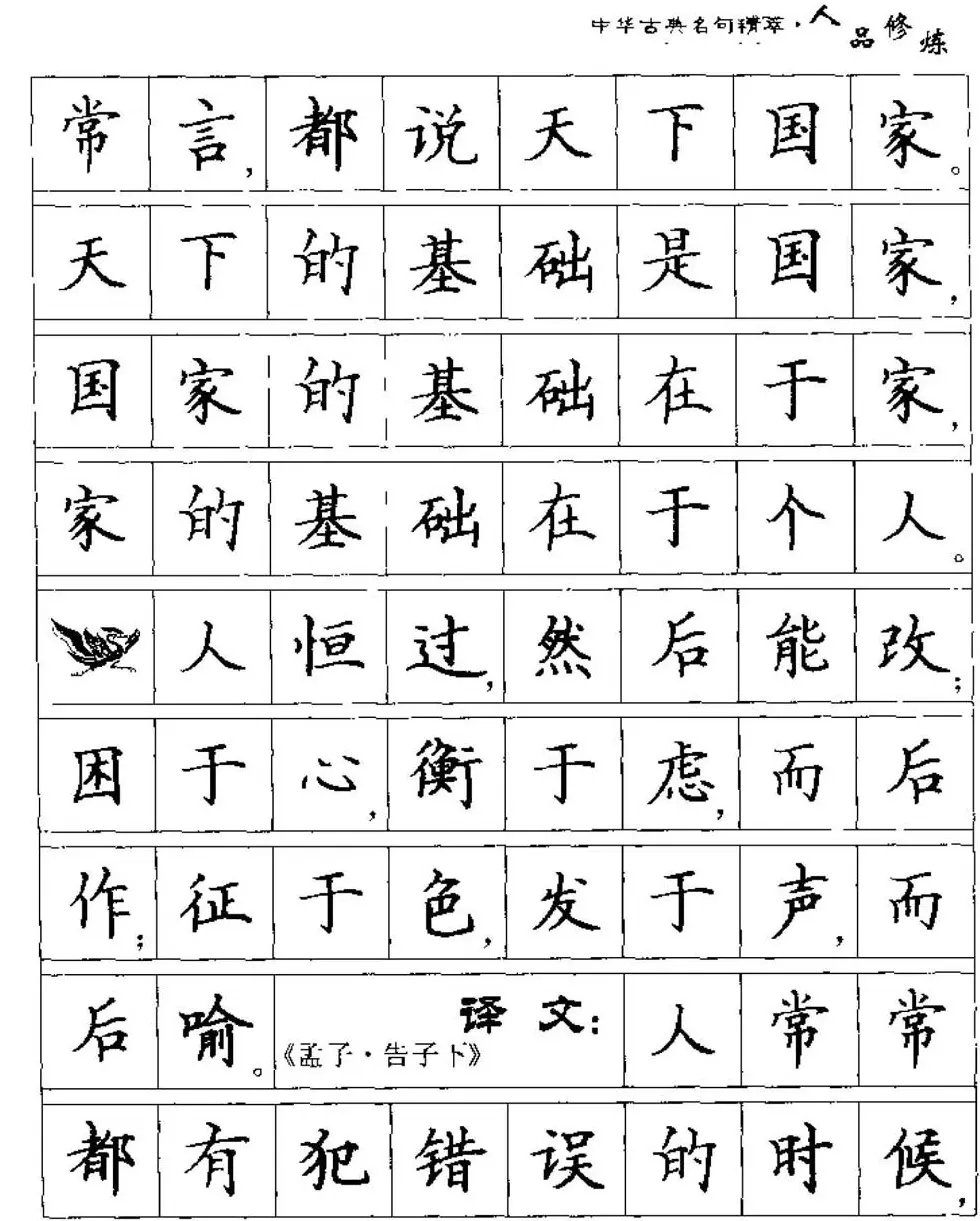 中华古典名句精萃·人品修炼
常言,都说天下国家。
天下的基础是国家,
国家的基础在于家,
家的基础在于个人。
人恒过,然后能改;
困于心,衡于虑,而后
作;征于色,发于声,而
后喻。《孟子·告子下》译文:人常常
都有犯错误的时候,